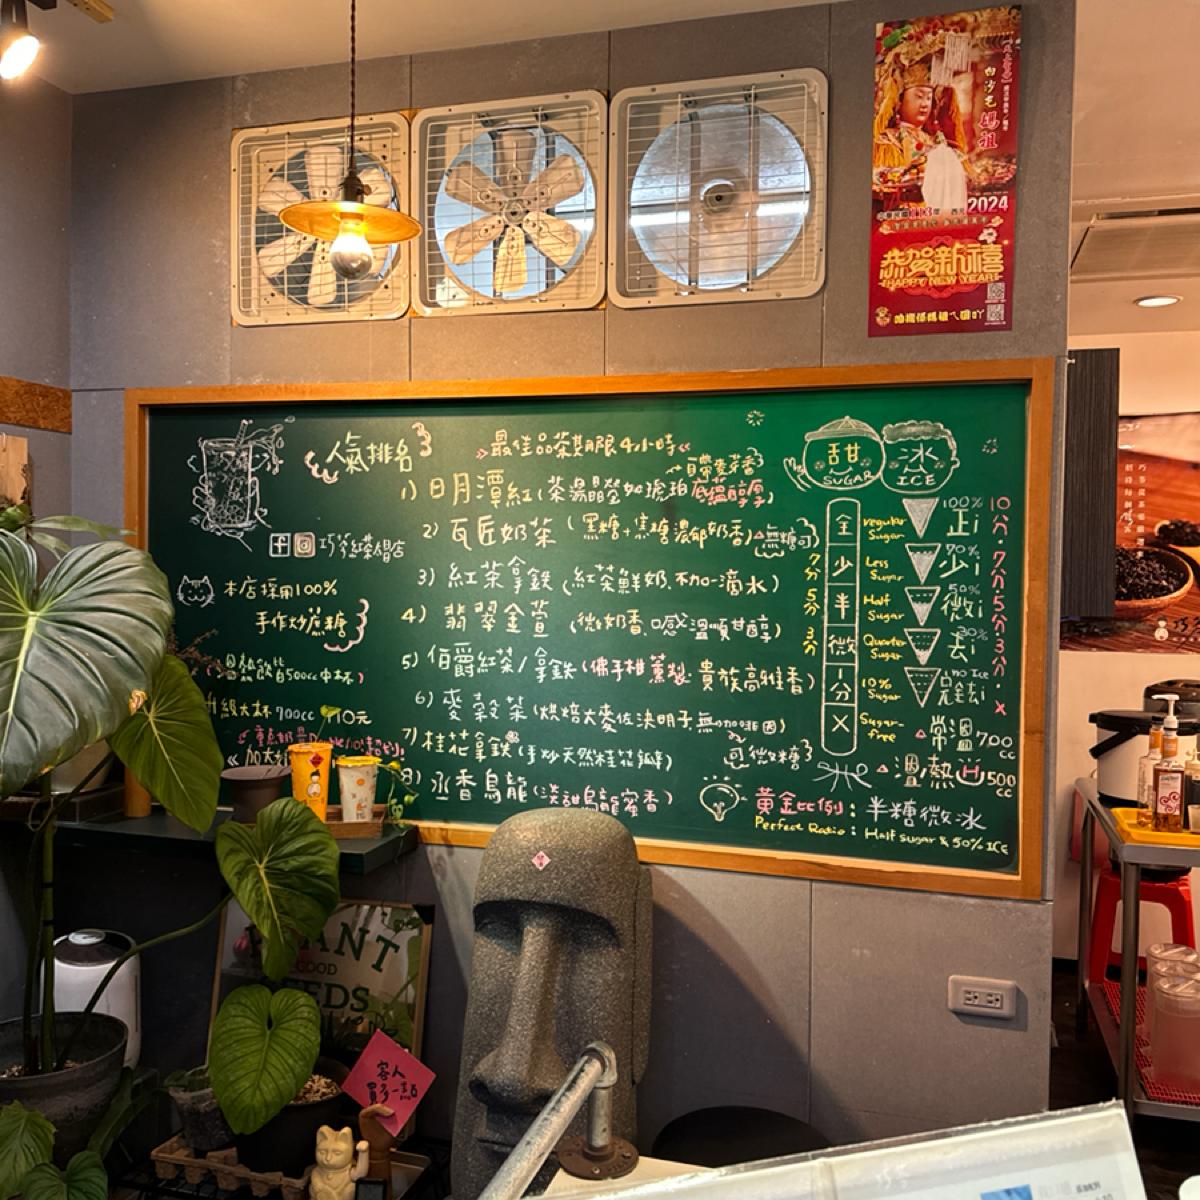 白沙屯媽祖
2024
恭賀新禧
HAPPY NEW YEAR
人氣排名
最佳品茶期限4小時
自帶麥芽香
1) 日月潭紅(茶湯晶瑩如琥珀 底蘊醇厚)
2) 瓦匠奶茶 (黑糖+焦糖濃郁奶香) 無糖可
3) 紅茶拿鐵 (紅茶鮮奶.不加一滴水)
4) 翡翠金萱 (微奶香.口感溫順甘醇)
5) 伯爵紅茶/拿鐵(佛手柑薰製 貴族高雅香)
6) 麥穀茶(烘焙大麥佐決明子.無咖啡因)
可微糖
7) 桂花拿鐵(手炒天然桂花)
8) 丞香烏龍(淡甜烏龍蜜香)
本店採用100%
手作炒蔗糖
500cc中杯)
升級大杯700cc 10元
甜 SUGAR
冰 ICE
全 regular Sugar 100% 正i 10分
少 Less Sugar 70% 少i 7分
半 Half Sugar 50% 微i 5分
微 Quarter Sugar 30% 去i 3分
一分 10% Sugar no Ice 完全i x
X Sugar-free
7分
5分
3分
常溫 700cc
溫熱 500cc
黃金比例：半糖微冰
Perfect Ratio : Half sugar & 50% ICE
PLANT
GOOD
客人
買多一點